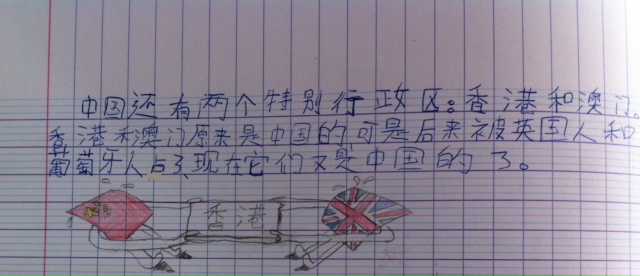 中国还有两个特别行政区:香港和澳门。
香港和澳门原来是中国的可是后来被英国人和
葡萄牙人占了,现在它们又是中国的了。
香港